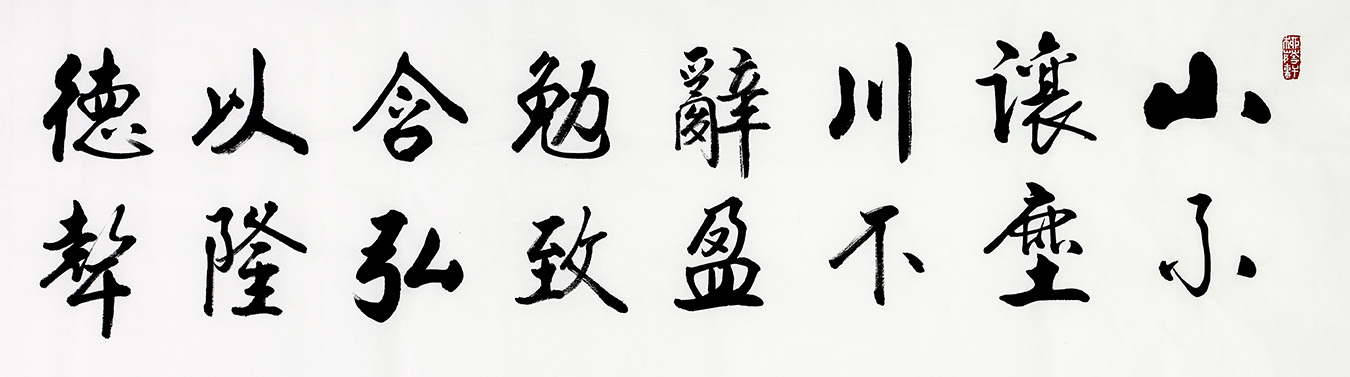 山不
讓塵
川不
辭盈
勉致
含弘
以隆
德聲